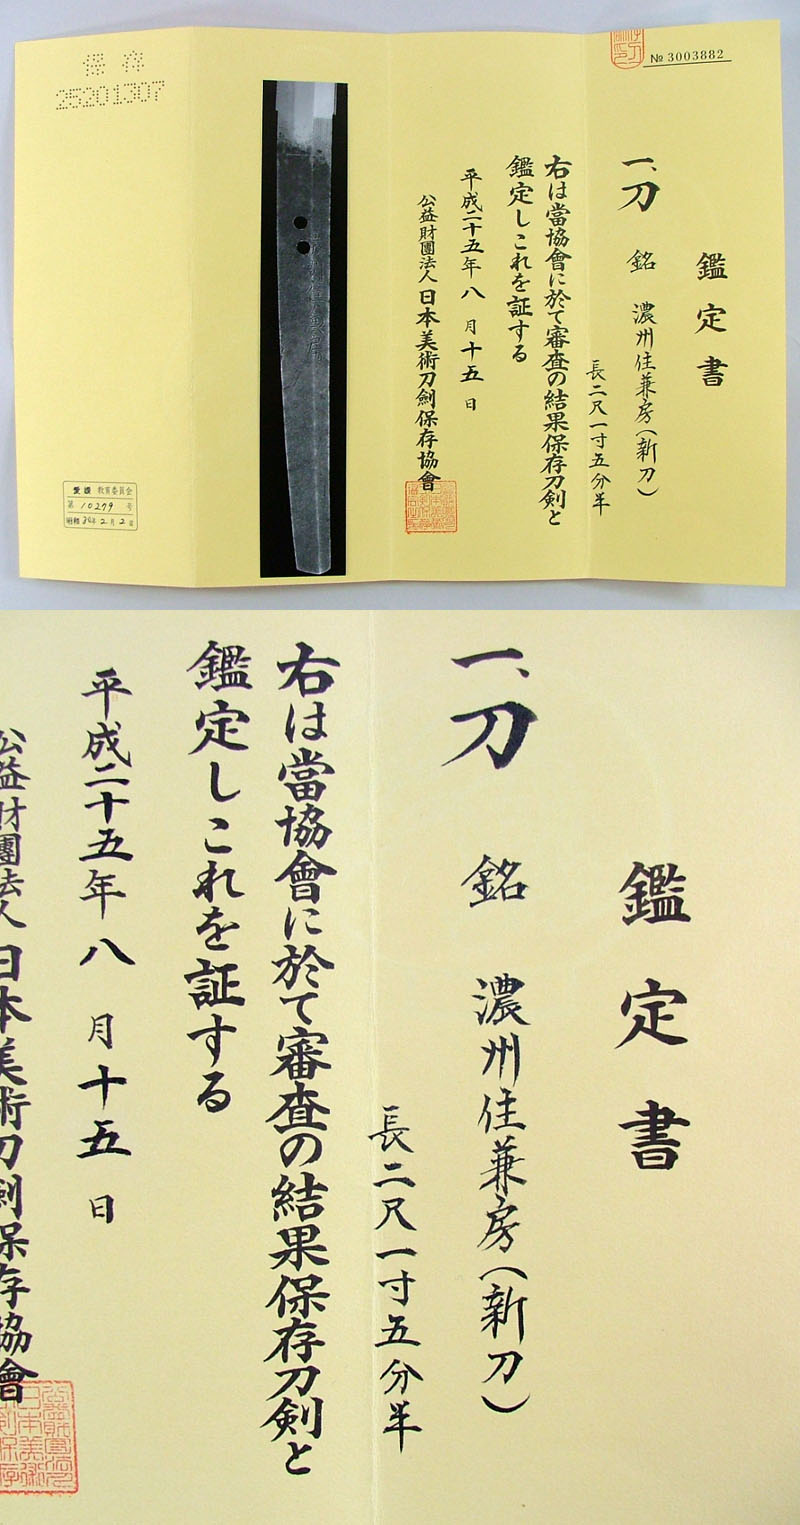 鑑定書
№ 3003882
一、刀 銘 濃州住兼房(新刀)
長二尺一寸五分半
右は當協會に於て審査の結果保存刀剣と
鑑定しこれを証する
平成二十五年八月十五日
公益財團法人日本美術刀劍保存協會
保存
25201307
愛媛 教育委員会
第 10279 号
昭和 36年 2月 2日
鑑定書
一、刀 銘 濃州住兼房(新刀)
長二尺一寸五分半
右は當協會に於て審査の結果保存刀剣と
鑑定しこれを証する
平成二十五年八月十五日
公益財團法人日本美術刀劍保存協會